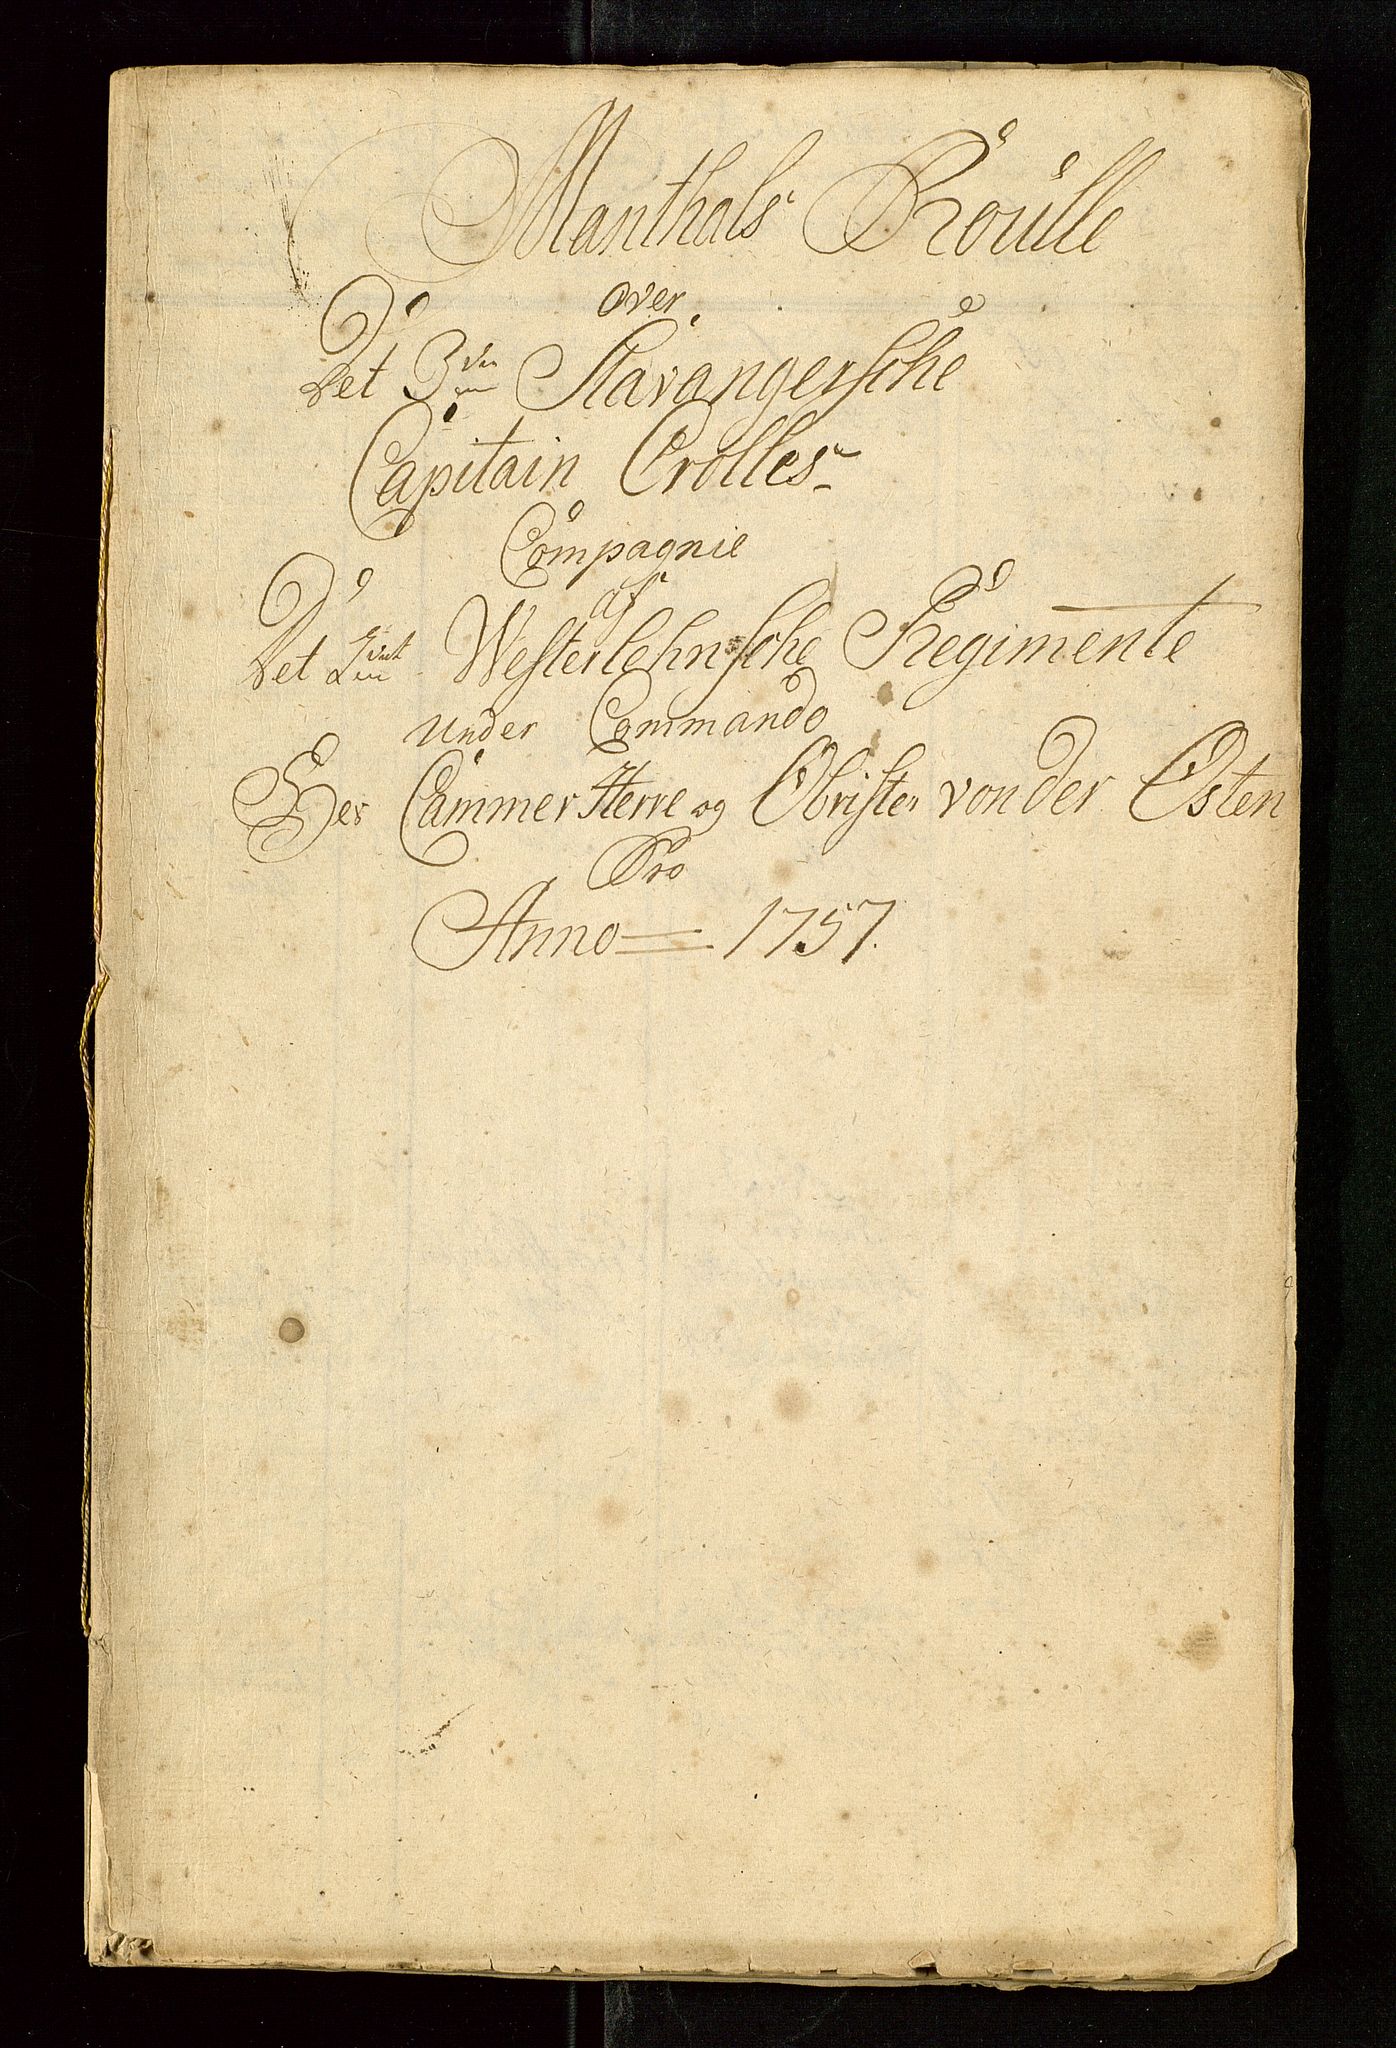 Manthals Roulle
over
Det 3die Stavangersche
Capitain Crolles
Compagnie
af
Det 2det Westerlehnsche Regimente
under Commando
Her Cammer Herre og Obrister von der Osten
Pro
Anno = 1757.